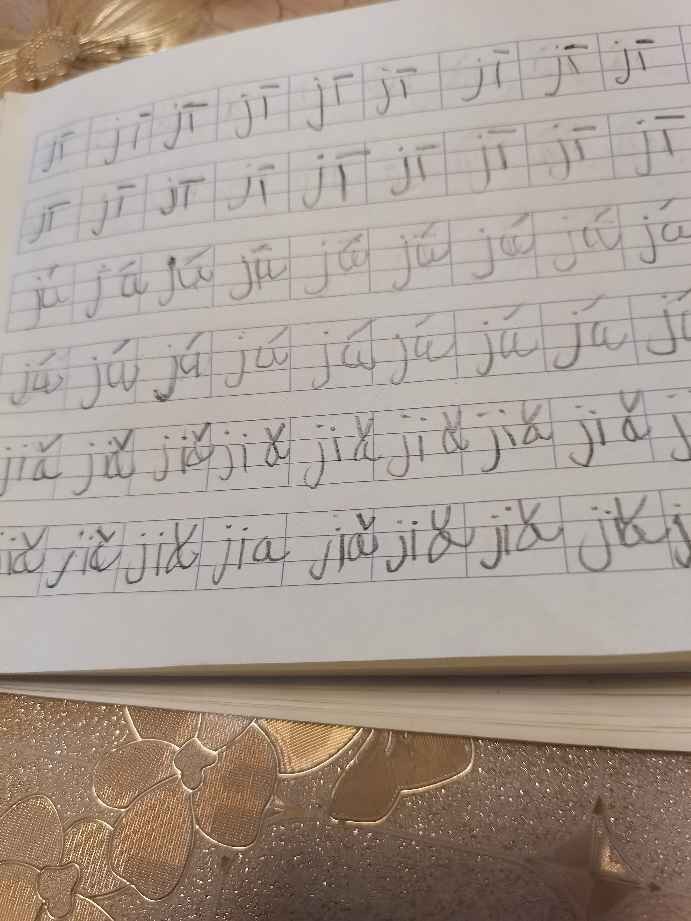 jī jī jī jī jī jī jī jī jī
jī jī jī jī jī jī jī jī jī
jú jú jú jú jú jú jú jú jú
jú jú jú jú jú jú jú jú jú
jiǎ jiǎ jiǎ jiǎ jiǎ jiǎ jiǎ jiǎ j
iǎ jiǎ jiǎ jia jiǎ jiǎ jiǎ jiǎ j